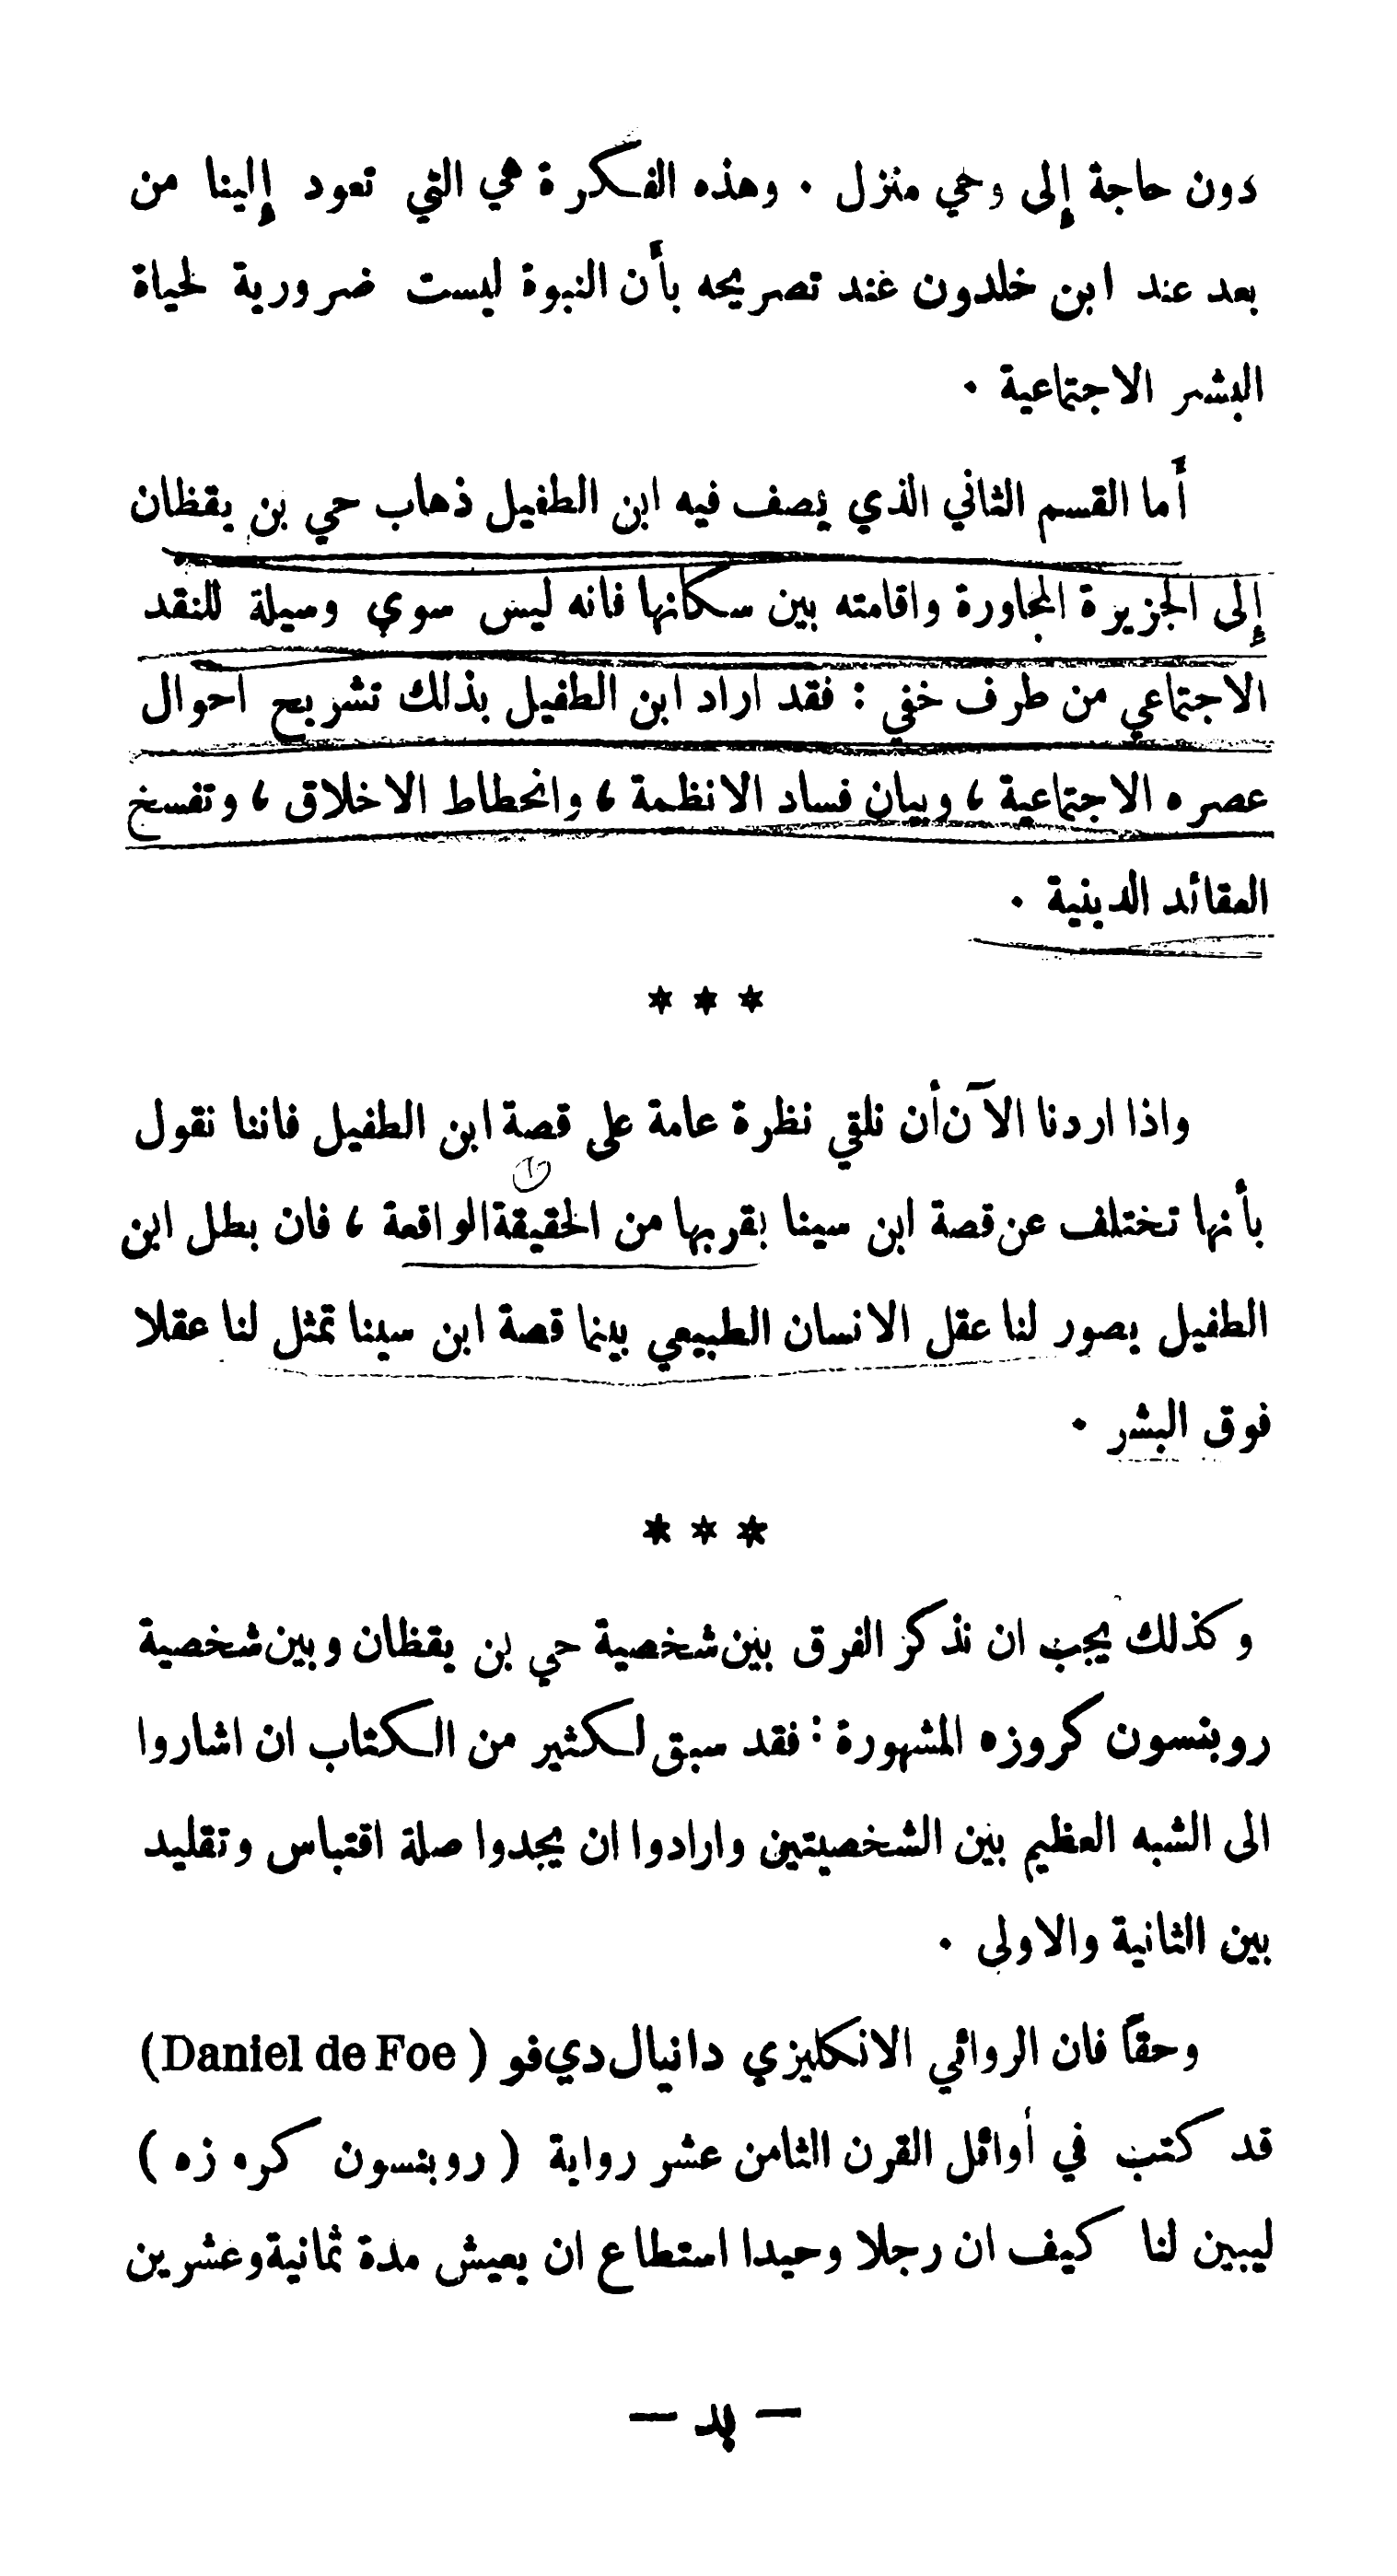 دون حاجة إلى وحي منزل . وهذه الفكرة هي التي تعود إلينا من
بعد عند ابن خلدون عند تصريحه بأن النبوة ليست ضرورية لحياة
البشر الاجتماعية .
أما القسم الثاني الذي يصف فيه ابن الطفيل ذهاب حي بن يقظان
إلى الجزيرة المجاورة واقامته بين سكانها فانه ليس سوى وسيلة للنقد
الاجتماعي من طرف خفي : فقد اراد ابن الطفيل بذلك تشريح احوال
عصره الاجتماعية ، وبيان فساد الانظمة ، وانحطاط الاخلاق ، وتفسخ
العقائد الدينية .
* * *
واذا اردنا الآن أن نلقي نظرة عامة على قصة ابن الطفيل فاننا نقول
بأنها تختلف عن قصة ابن سينا بقربها من الحقيقة الواقعة ، فان بطل ابن
الطفيل يصور لنا عقل الانسان الطبيعي بينما قصة ابن سينا تمثل لنا عقلا
فوق البشر .
* * *
وكذلك يجب ان نذكر الفرق بين شخصية حي بن يقظان وبين شخصية
روبنسون كروزه المشهورة : فقد سبق لكثير من الكتاب ان اشاروا
الى الشبه العظيم بين الشخصيتين وارادوا ان يجدوا صلة اقتباس وتقليد
بين الثانية والاولى .
وحقاً فان الروائي الانكليزي دانيال دي فو ( Daniel de Foe )
قد كتب في أوائل القرن الثامن عشر رواية ( روبنسون كره زه )
ليبين لنا كيف ان رجلا وحيدا استطاع ان يعيش مدة ثمانية وعشرين
— يد —